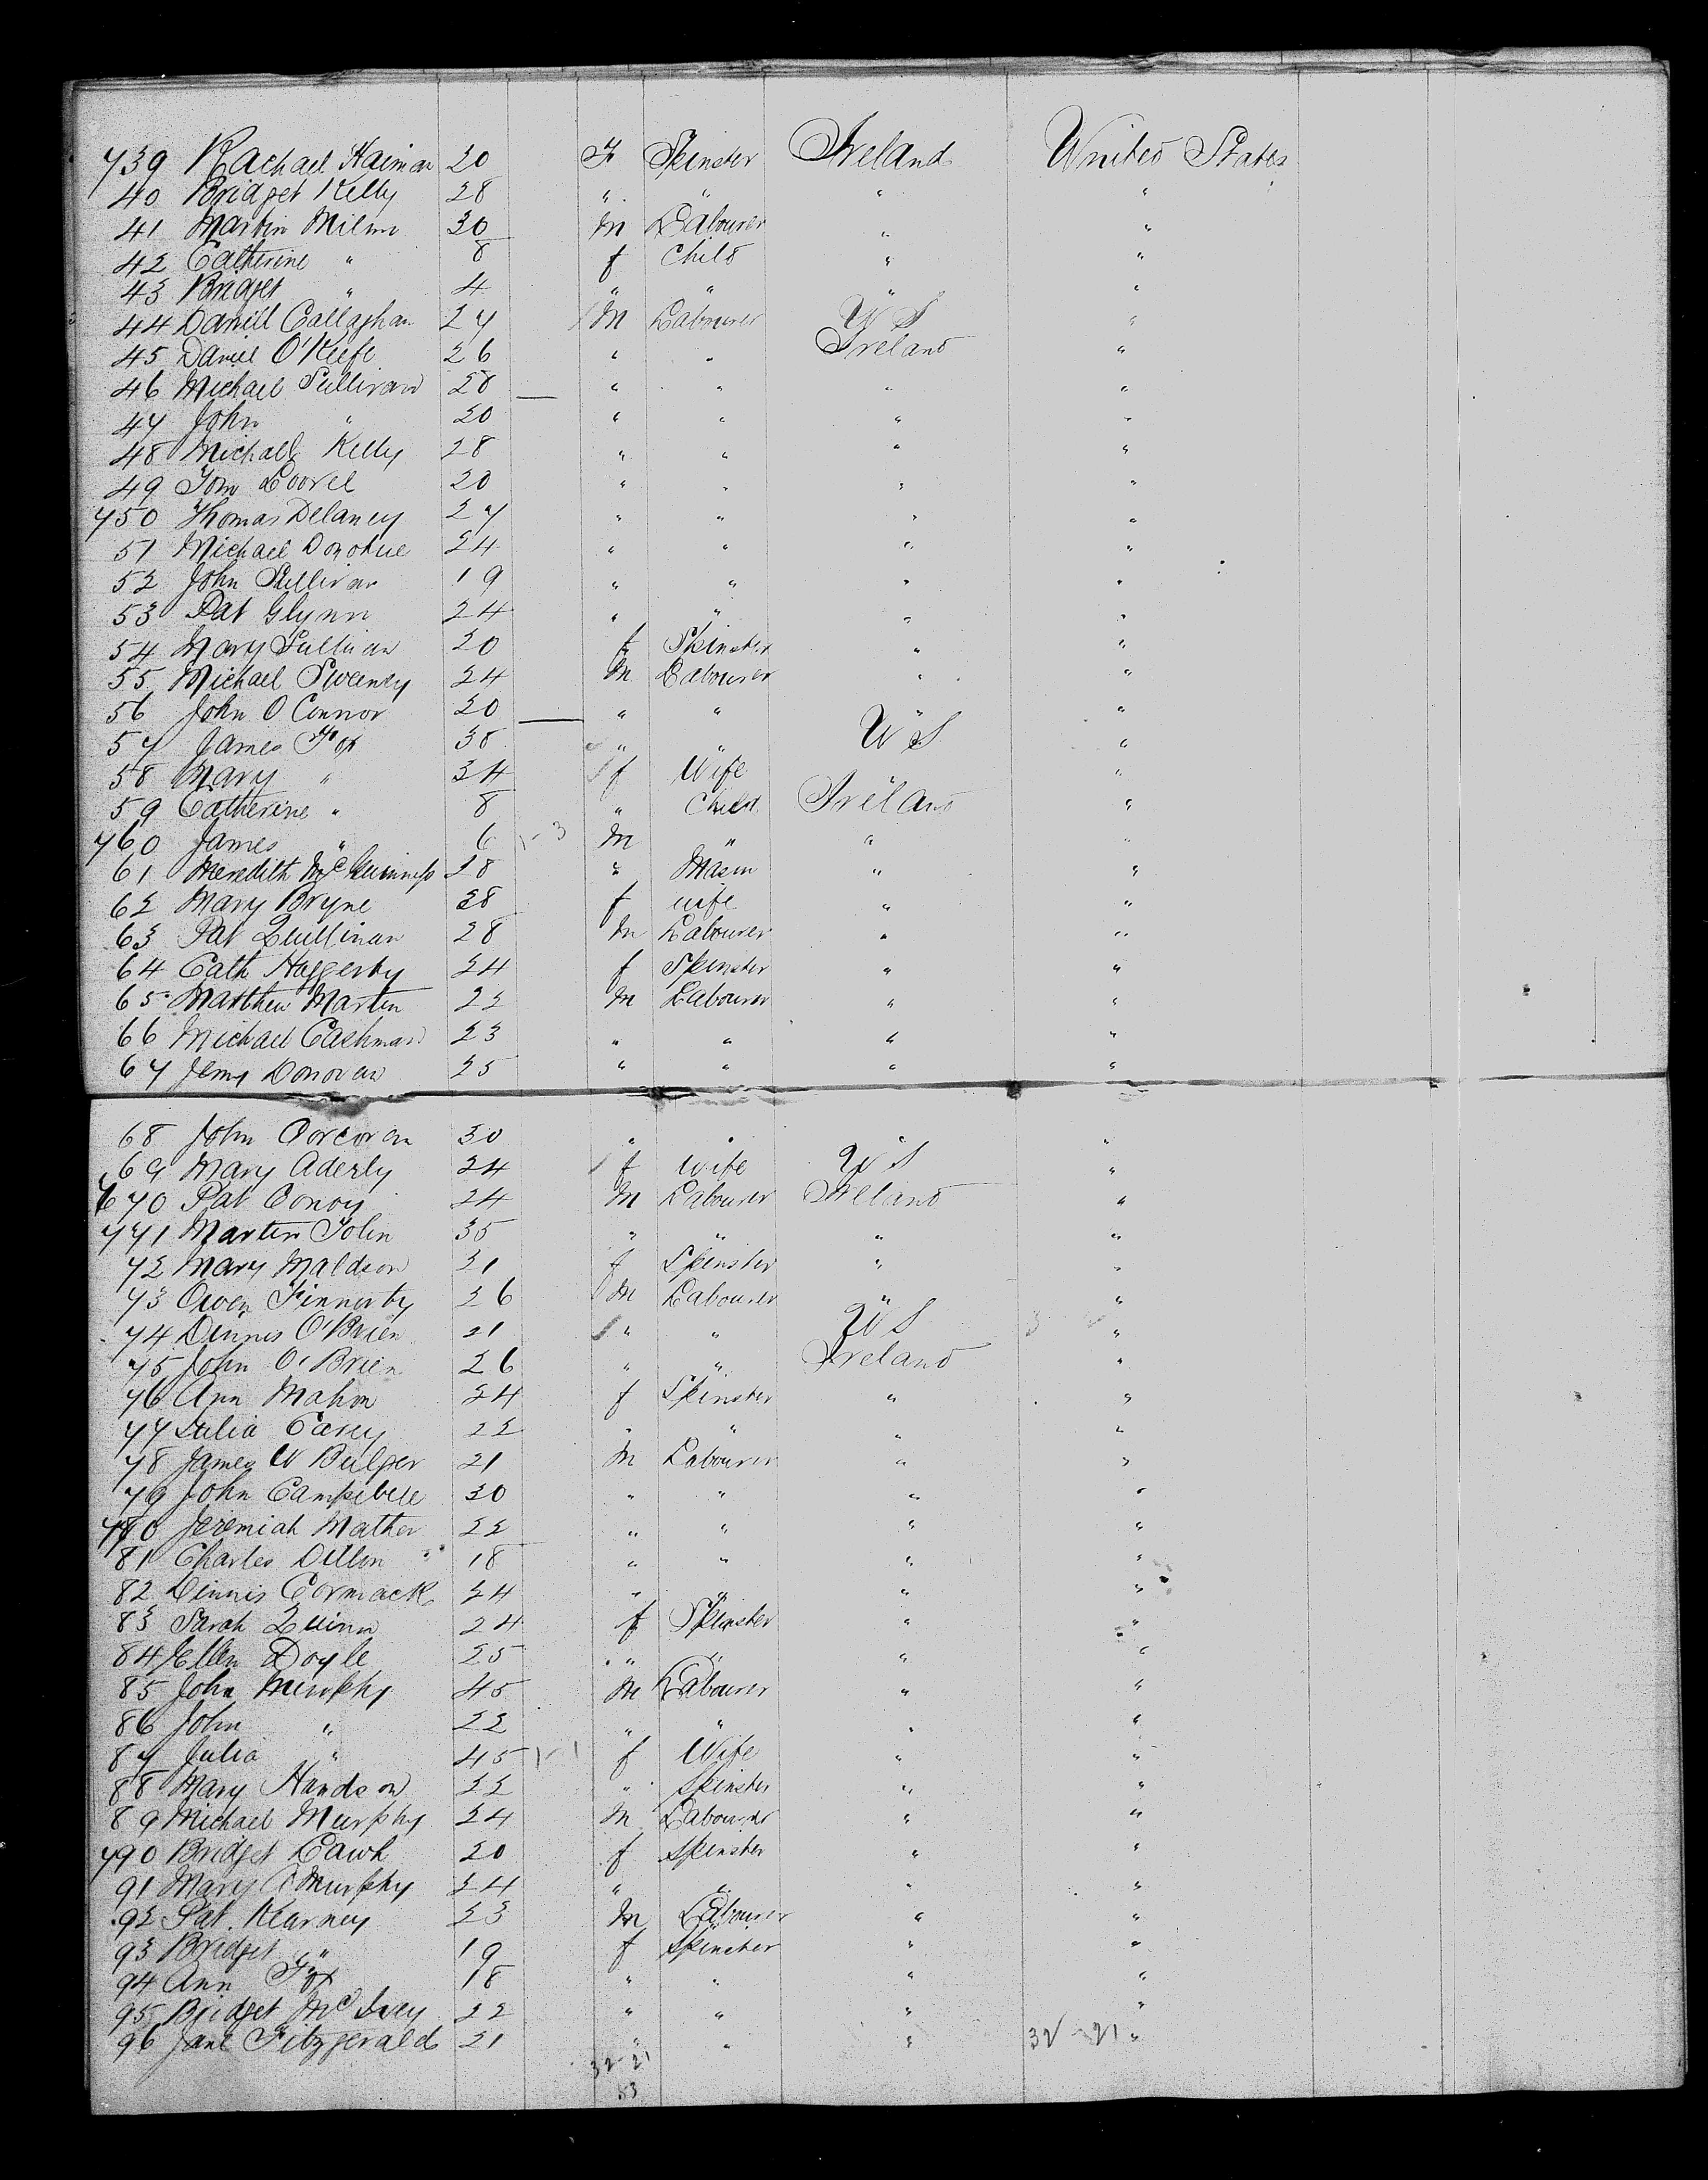 739 Rachael Haiman 20 F Spinster Ireland United States
40 Bridget Kelly 28 " " " "
41 Martin Milm 30 M Labourer " "
42 Catherine " 8 f Child " "
43 Bridget " 4 " " " "
44 Daniel Callaghan 27 M Labourer U S "
45 Daniel O'Keefe 26 " " Ireland "
46 Michael Sullivan 28 " " " "
47 John " 20 " " " "
48 Michael Kelly 28 " " " "
49 Tom 20 " " " "
750 Thomas Delaney 27 " " " "
51 Michael Donohue 24 " " " "
52 John Sullivan 19 " " " "
53 Pat Glynn 24 " " " "
54 Mary Sullivan 20 f Spinster " "
55 Michael Sweeney 24 M Labourer " "
56 John O Connor 20 " " " "
57 James Fox 38 " " U S "
58 Mary " 34 f Wife " "
59 Catherine " 8 " Child Ireland "
760 James " 6 1-3 M " " "
61 Meredith McGuinness 28 " Mason " "
62 Mary Bryne 28 f wife " "
63 Pat Quillinan 28 M Labourer " "
64 Cath Haggerty 24 f Spinster " "
65 Matthew Martin 22 M Labourer " "
66 Michael Cashman 23 " " " "
67 Jemy Donovan 25 " " " "
68 John Corcoran 30 " " " "
69 Mary Aderly 24 f Wife U S "
670 Pat Conoy 24 M Labourer Ireland "
771 Martin Tolin 35 " " " "
72 Mary Maldson 21 f Spinster " "
73 Owen Finnerty 26 M Labourer " "
74 Dinnis O'Brien 21 " " U S "
75 John O'Brien 26 " " Ireland "
76 Ann Mahon 24 f Spinster " "
77 Julia Casey 22 " " " "
78 James W Bulger 21 M Labourer " "
79 John Campbell 30 " " " "
780 Jeremiah Mather 22 " " " "
81 Charles Dillon 18 " " " "
82 Dinnis Cormack 24 " " " "
83 Sarah Quinn 24 f Spinster " "
84 Ellen Doyle 25 " " " "
85 John Murphy 45 M Labourer " "
86 John " 22 " " " "
87 Julia " 45 1-1 f Wife " "
88 Mary Handson 22 " Spinster " "
89 Michael Murphy 24 M Labourer " "
790 Bridget 20 f Spinster " "
91 Mary A Murphy 24 " " " "
92 Pat. Kearney 23 M Labourer " "
93 Bridget " 19 f Spinster " "
94 Ann Fox 18 " " " "
95 Bridget 22 " " " "
96 Jane Fitzgerald 21 " " " 32-21 "
32-21
53